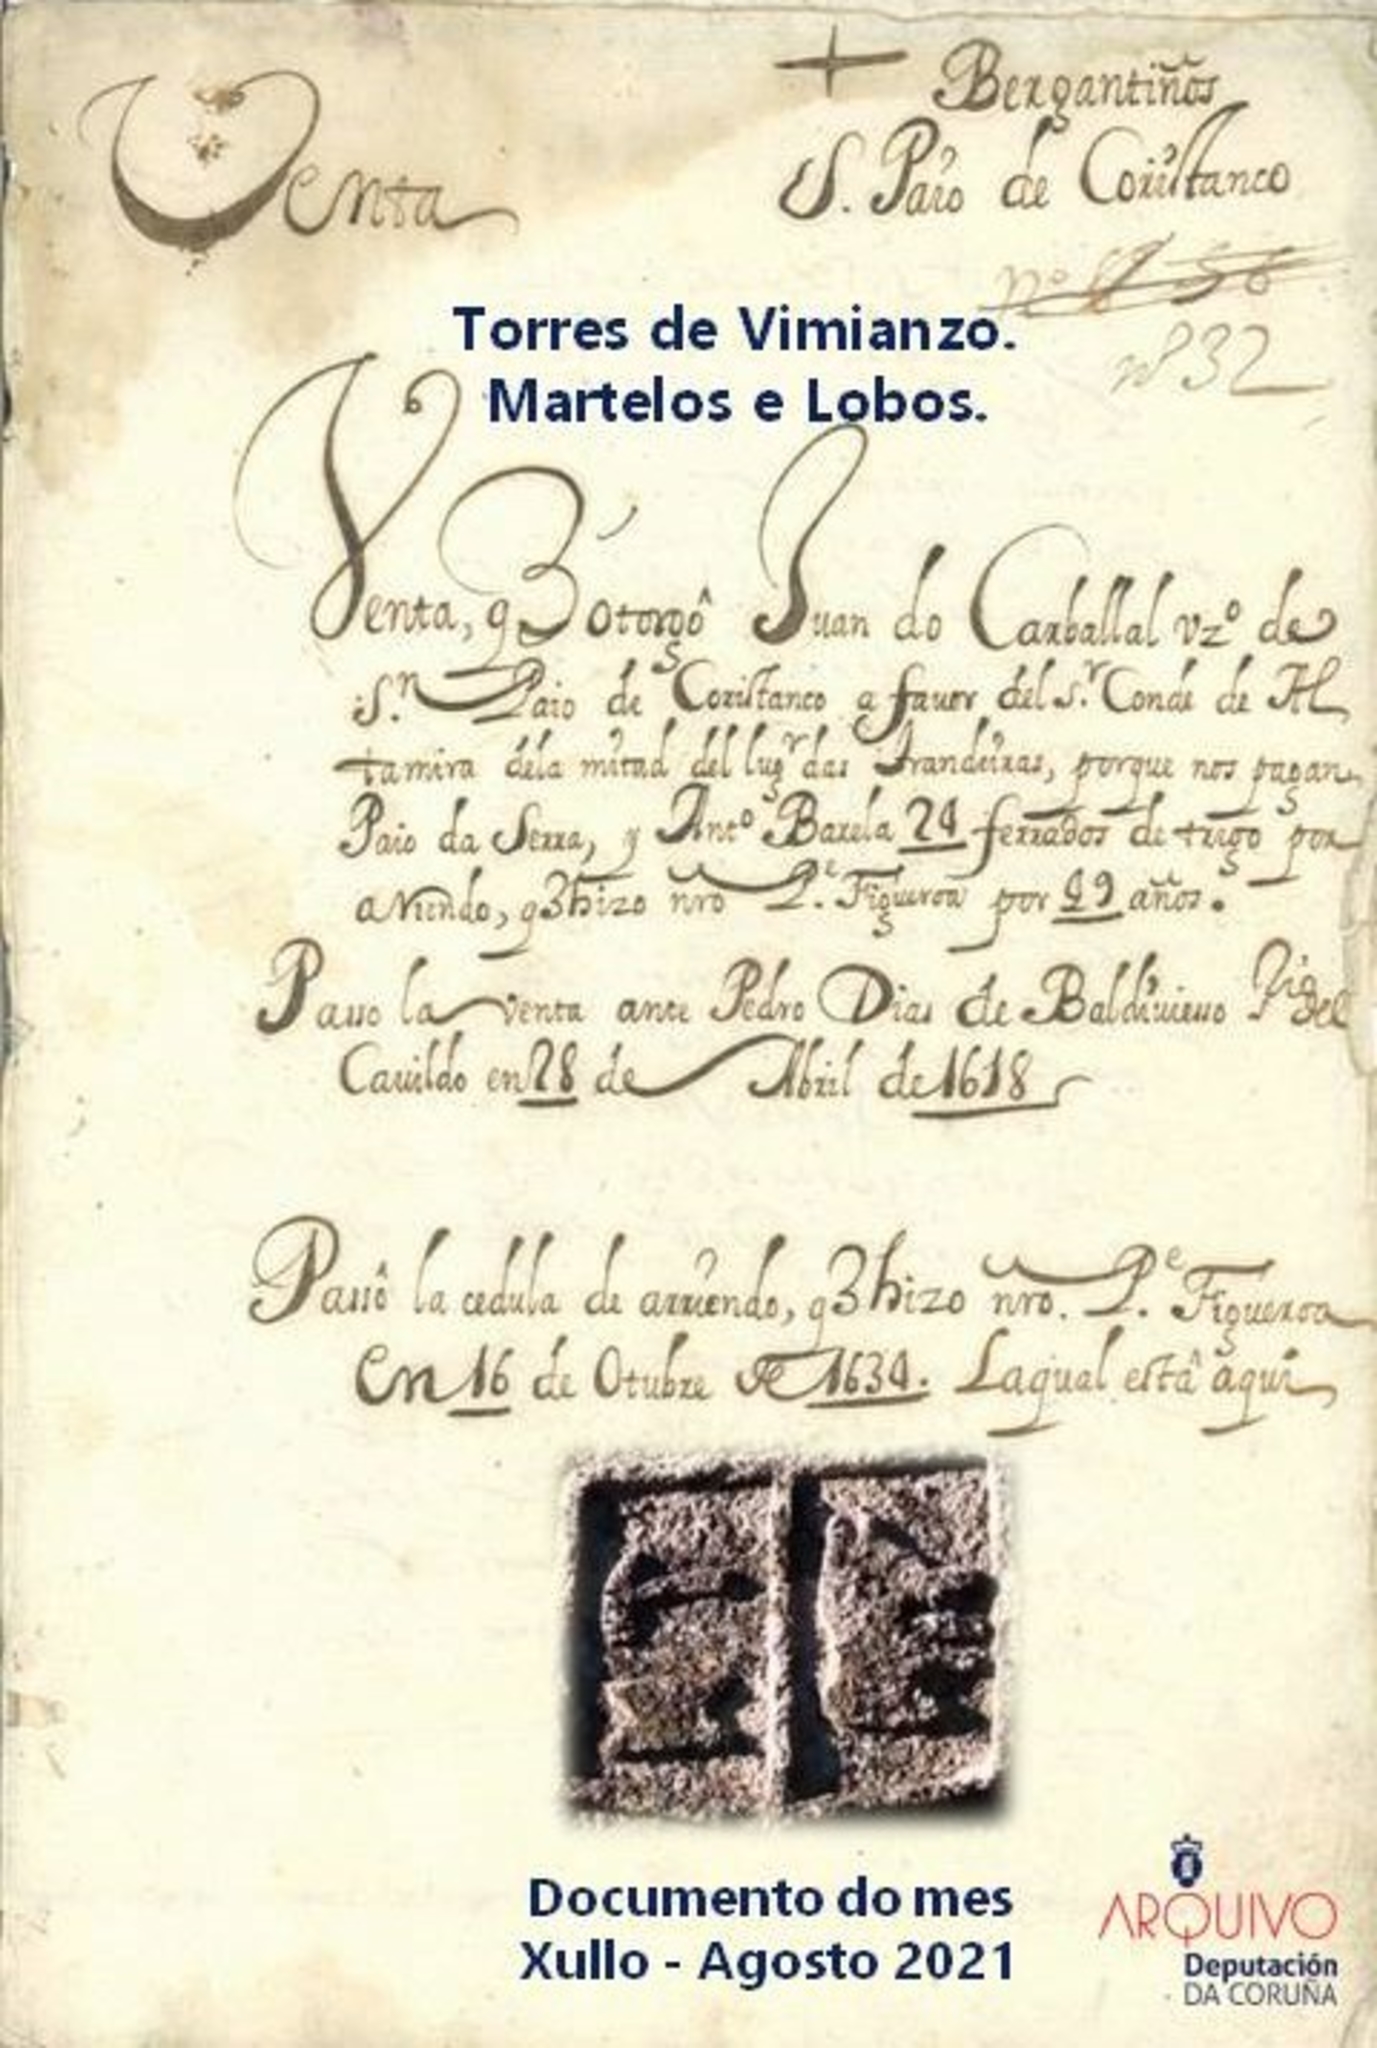 Venta
+ Bergantiños
S. Paio de Coristanco
nº 56
nº 32
Torres de Vimianzo.
Martelos e Lobos.
Venta, q otorgô Juan do Carballal vzº de
S.n Paio de Coristanco a favor del S.r Conde de Al
tamira dela mitad del lugr das Trandeiras, porque nos pagan
Paio da Serra, y Antº Barela 24 ferrados de trigo por
arriendo, q hizo nro P.e Figueroa por 29 años.
Passo la venta ante Pedro Dias de Baldivieso del
Cavildo en 28 de Abril de 1618
Passô la cedula de arriendo, q hizo nro. P.e Figueroa
en 16 de Otubre de 1634. Laqual està aqui
Documento do mes
Xullo - Agosto 2021
ARQUIVO
Deputación
DA CORUÑA